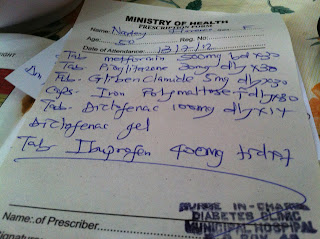 MINISTRY OF HEALTH
PRESCRIPTION FORM
Name:
Age: 50 Reg. No:
Date of Attendance: 18/7/12
Tab metformin 500mg bd x30
Tab Pioglitazone 30mg dly x30
Tab. Glibenclamide 5mg dly x30
Caps. Iron Polymaltose dly x30
Tab. Diclofenac 100mg dly x14
Diclofenac gel
Tab Ibuprofen 400mg tds x7
Name: of Prescriber
NURSE IN-CHARGE
DIABETES CLINIC
MUNICIPAL HOSPITAL